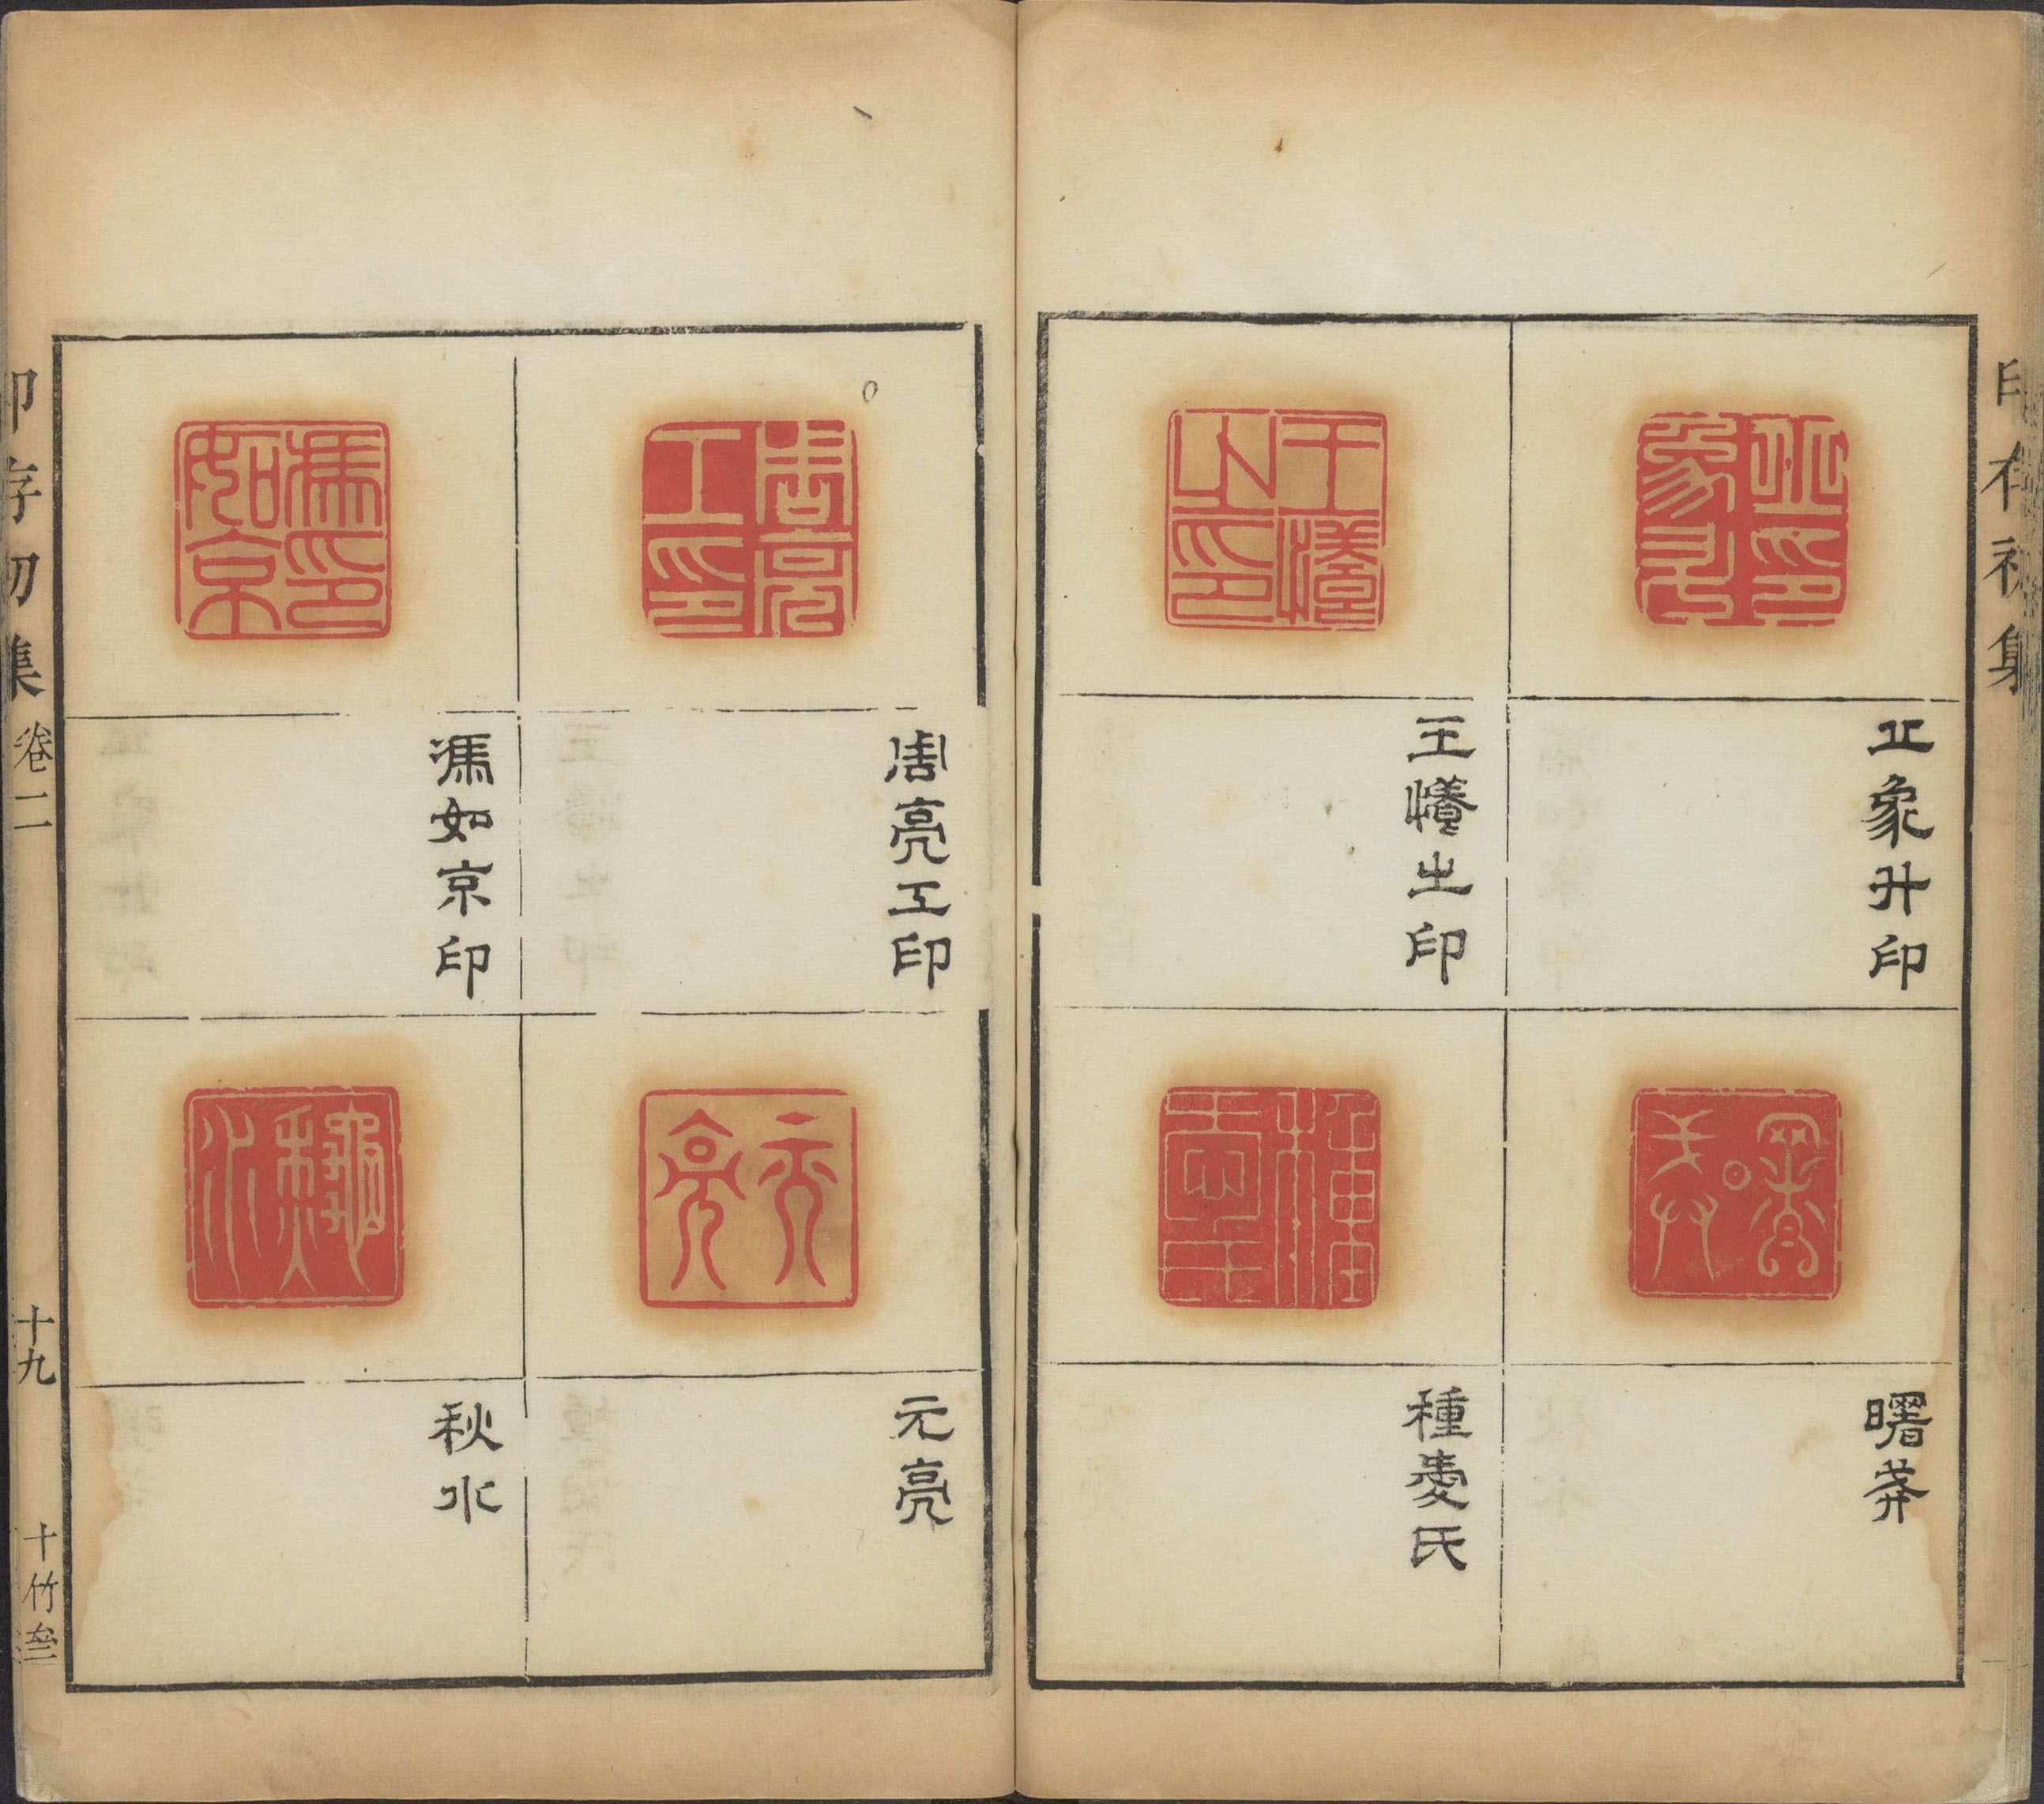 印存初集
丘象升印
曙莽
王㦤生印
種憂氏
周亮工印
元亮
馮如京印
秋水
印存初集 卷二 十九 十竹